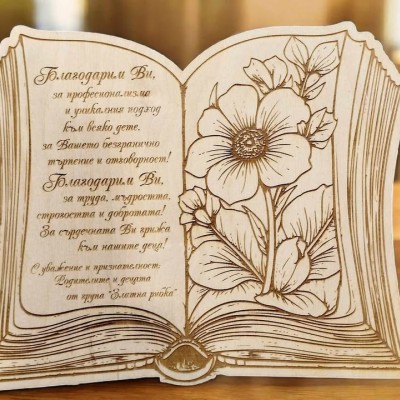 Благодарим Ви,
за професионализма
и уникалния подход
към всяко дете.
за Вашето безгранично
търпение и отговорност!
Благодарим Ви,
за труда, мъдростта,
строгостта и добротата!
За сърдечната Ви грижа
към нашите деца!
С уважение и признателност:
Родителите и децата
от група "Златна рибка"